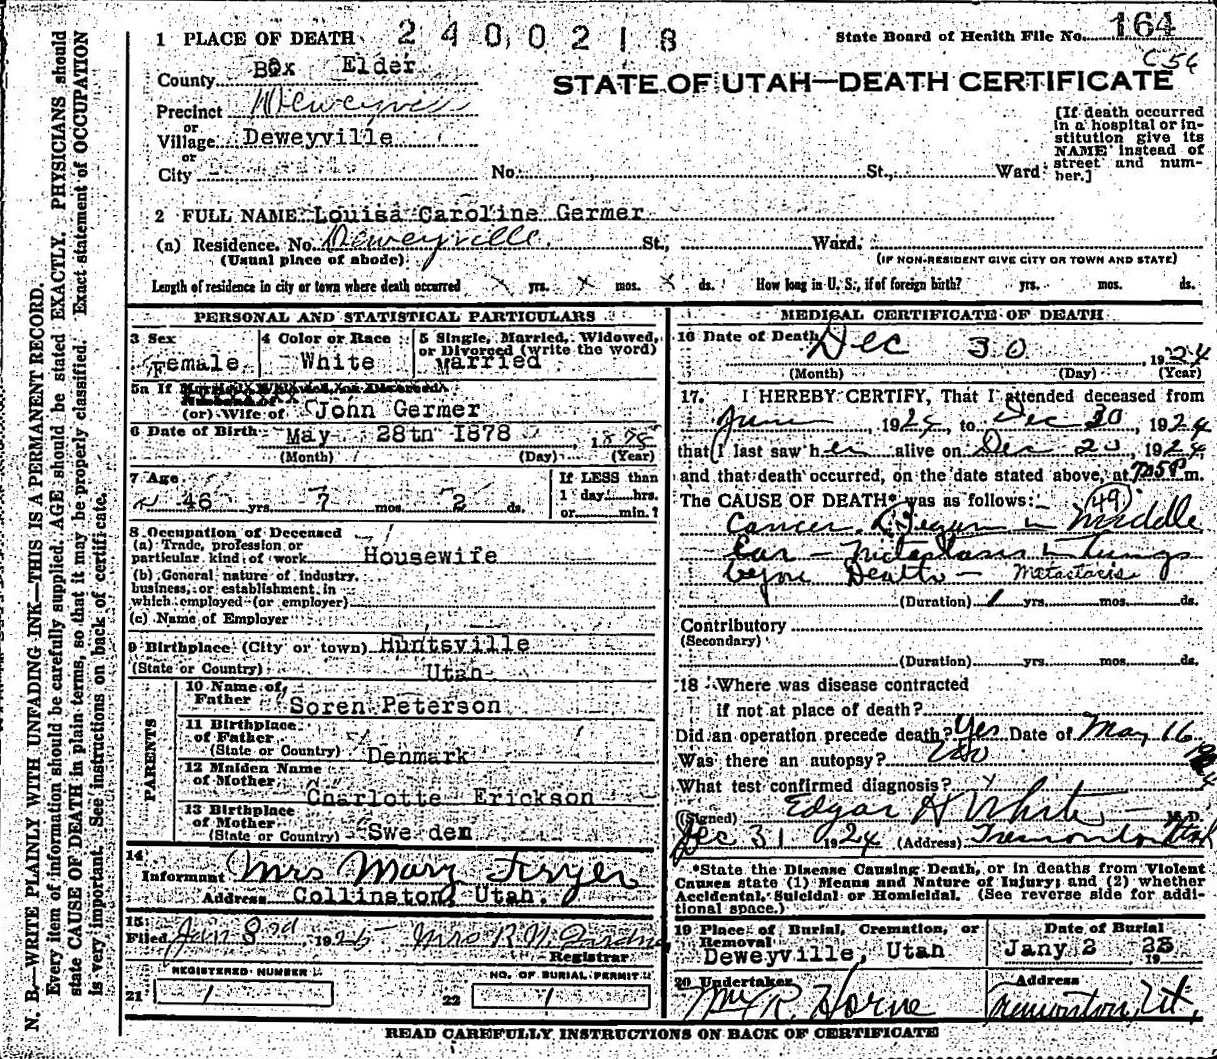 1 PLACE OF DEATH 2400218 State Board of Health File No. 164
C54
County Box Elder
STATE OF UTAH—DEATH CERTIFICATE
Precinct Deweyville
or
Village Deweyville
or
City No. St., Ward
[If death occurred
in a hospital or in-
stitution give its
NAME instead of
street and num-
ber.]
2 FULL NAME Louisa Caroline Germer
(a) Residence. No. Deweyville. St., Ward,
(Usual place of abode) (IF NON-RESIDENT GIVE CITY OR TOWN AND STATE)
Length of residence in city or town where death occurred yrs. x mos. x ds. How long in U. S., if of foreign birth? yrs. mos. ds.
PERSONAL AND STATISTICAL PARTICULARS
3 Sex
Female
4 Color or Race
White
5 Single, Married, Widowed,
or Divorced (write the word)
Married
5a If Married, Widowed, or Divorced
Husband of
(or) Wife of John Germer
6 Date of Birth May 28th 1878, 1878
(Month) (Day) (Year)
7 Age
46 yrs. 7 mos. 2 ds.
If LESS than
1 day hrs.
or min.?
8 Occupation of Deceased
(a) Trade, profession or
particular kind of work Housewife
(b) General nature of industry,
business, or establishment in
which employed (or employer)
(c) Name of Employer
9 Birthplace (City or town) Huntsville
(State or Country) Utah
PARENTS
10 Name of
Father Soren Peterson
11 Birthplace
of Father
(State or Country) Denmark
12 Maiden Name
of Mother
Charlotte Erickson
13 Birthplace
of Mother
(State or Country) Sweden
14
Informant Mrs Mary Fryer
Address Collinston, Utah.
15
Filed Jan 3rd, 1925 Mrs R. N.
Registrar
REGISTERED NUMBER
21 1
NO. OF BURIAL PERMIT
22 1
MEDICAL CERTIFICATE OF DEATH
16 Date of Death Dec 30, 1924
(Month) (Day) (Year)
17. I HEREBY CERTIFY, That I attended deceased from
June, 1924, to Dec 30, 1924
that I last saw her alive on Dec 20, 1924
and that death occurred, on the date stated above, at 7:05P m.
The CAUSE OF DEATH* was as follows: 49
Cancer, Began in Middle
Ear — Metastasis in Lungs
before Death — Metastasis
(Duration) 1 yrs. mos. ds.
Contributory
(Secondary)
(Duration) yrs. mos. ds.
18 Where was disease contracted
if not at place of death?
Did an operation precede death? Yes Date of May 16 1924
Was there an autopsy? No
What test confirmed diagnosis?
(Signed) Edgar H White M.D.
Dec 31 1924 (Address) Tremonton Utah
*State the Disease Causing Death, or in deaths from Violent
Causes state (1) Means and Nature of Injury; and (2) whether
Accidental, Suicidal or Homicidal. (See reverse side for addi-
tional space.)
19 Place of Burial, Cremation, or
Removal
Deweyville, Utah
Date of Burial
Jany 2 1925
20 Undertaker
Wm R. Horne
Address
Tremonton, Ut.
READ CAREFULLY INSTRUCTIONS ON BACK OF CERTIFICATE
N. B.—WRITE PLAINLY WITH UNFADING INK—THIS IS A PERMANENT RECORD.
Every item of information should be carefully supplied. AGE should be stated EXACTLY. PHYSICIANS should
state CAUSE OF DEATH in plain terms, so that it may be properly classified. Exact statement of OCCUPATION
is very important. See instructions on back of certificate.